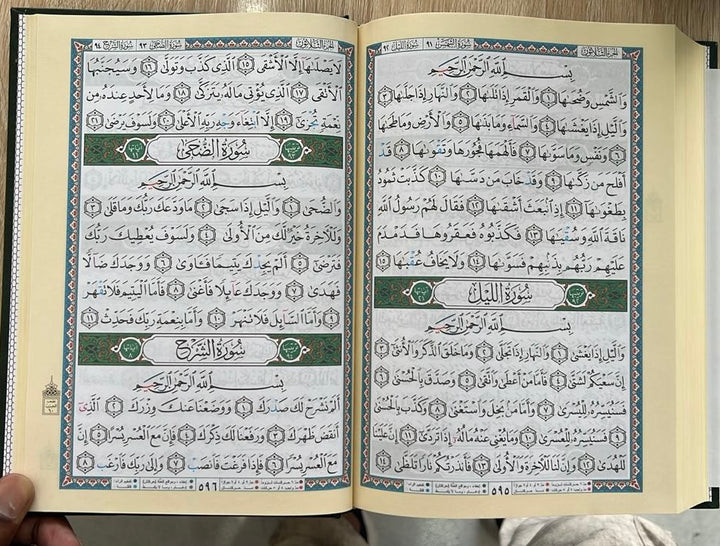 الجزء الثلاثون سورة الشمس ٩١ سورة الليل ٩٢
بِسْمِ اللَّهِ الرَّحْمَٰنِ الرَّحِيمِ
وَالشَّمْسِ وَضُحَىٰهَا ١ وَالْقَمَرِ إِذَا تَلَىٰهَا ٢ وَالنَّهَارِ إِذَا جَلَّىٰهَا ٣
وَالَّيْلِ إِذَا يَغْشَىٰهَا ٤ وَالسَّمَاءِ وَمَا بَنَىٰهَا ٥ وَالْأَرْضِ وَمَا طَحَىٰهَا
٦ وَنَفْسٍ وَمَا سَوَّىٰهَا ٧ فَأَلْهَمَهَا فُجُورَهَا وَتَقْوَىٰهَا ٨ قَدْ
أَفْلَحَ مَن زَكَّىٰهَا ٩ وَقَدْ خَابَ مَن دَسَّىٰهَا ١٠ كَذَّبَتْ ثَمُودُ
بِطَغْوَىٰهَا ١١ إِذِ انبَعَثَ أَشْقَىٰهَا ١٢ فَقَالَ لَهُمْ رَسُولُ اللَّهِ
نَاقَةَ اللَّهِ وَسُقْيَٰهَا ١٣ فَكَذَّبُوهُ فَعَقَرُوهَا فَدَمْدَمَ
عَلَيْهِمْ رَبُّهُم بِذَنبِهِمْ فَسَوَّىٰهَا ١٤ وَلَا يَخَافُ عُقْبَٰهَا ١٥
سُورَةُ اللَّيْلِ
بِسْمِ اللَّهِ الرَّحْمَٰنِ الرَّحِيمِ
وَالَّيْلِ إِذَا يَغْشَىٰ ١ وَالنَّهَارِ إِذَا تَجَلَّىٰ ٢ وَمَا خَلَقَ الذَّكَرَ وَالْأُنثَىٰ ٣
إِنَّ سَعْيَكُمْ لَشَتَّىٰ ٤ فَأَمَّا مَنْ أَعْطَىٰ وَاتَّقَىٰ ٥ وَصَدَّقَ بِالْحُسْنَىٰ ٦
فَسَنُيَسِّرُهُ لِلْيُسْرَىٰ ٧ وَأَمَّا مَن بَخِلَ وَاسْتَغْنَىٰ ٨ وَكَذَّبَ بِالْحُسْنَىٰ
٩ فَسَنُيَسِّرُهُ لِلْعُسْرَىٰ ١٠ وَمَا يُغْنِي عَنْهُ مَالُهُ إِذَا تَرَدَّىٰ ١١ إِنَّ عَلَيْنَا
لَلْهُدَىٰ ١٢ وَإِنَّ لَنَا لَلْآخِرَةَ وَالْأُولَىٰ ١٣ فَأَنذَرْتُكُمْ نَارًا تَلَظَّىٰ ١٤
٥٩٥
الجزء الثلاثون سورة الضحى ٩٣ سورة الشرح ٩٤
لَا يَصْلَىٰهَا إِلَّا الْأَشْقَى ١٥ الَّذِي كَذَّبَ وَتَوَلَّىٰ ١٦ وَسَيُجَنَّبُهَا
الْأَتْقَى ١٧ الَّذِي يُؤْتِي مَالَهُ يَتَزَكَّىٰ ١٨ وَمَا لِأَحَدٍ عِندَهُ مِن
نِّعْمَةٍ تُجْزَىٰ ١٩ إِلَّا ابْتِغَاءَ وَجْهِ رَبِّهِ الْأَعْلَىٰ ٢٠ وَلَسَوْفَ يَرْضَىٰ ٢١
سُورَةُ الضُّحَىٰ
بِسْمِ اللَّهِ الرَّحْمَٰنِ الرَّحِيمِ
وَالضُّحَىٰ ١ وَالَّيْلِ إِذَا سَجَىٰ ٢ مَا وَدَّعَكَ رَبُّكَ وَمَا قَلَىٰ ٣
وَلَلْآخِرَةُ خَيْرٌ لَّكَ مِنَ الْأُولَىٰ ٤ وَلَسَوْفَ يُعْطِيكَ رَبُّكَ
فَتَرْضَىٰ ٥ أَلَمْ يَجِدْكَ يَتِيمًا فَآوَىٰ ٦ وَوَجَدَكَ ضَالًّا
فَهَدَىٰ ٧ وَوَجَدَكَ عَائِلًا فَأَغْنَىٰ ٨ فَأَمَّا الْيَتِيمَ فَلَا تَقْهَرْ
٩ وَأَمَّا السَّائِلَ فَلَا تَنْهَرْ ١٠ وَأَمَّا بِنِعْمَةِ رَبِّكَ فَحَدِّثْ ١١
سُورَةُ الشَّرْحِ
بِسْمِ اللَّهِ الرَّحْمَٰنِ الرَّحِيمِ
أَلَمْ نَشْرَحْ لَكَ صَدْرَكَ ١ وَوَضَعْنَا عَنكَ وِزْرَكَ ٢ الَّذِي
أَنقَضَ ظَهْرَكَ ٣ وَرَفَعْنَا لَكَ ذِكْرَكَ ٤ فَإِنَّ مَعَ الْعُسْرِ يُسْرًا ٥ إِنَّ
مَعَ الْعُسْرِ يُسْرًا ٦ فَإِذَا فَرَغْتَ فَانصَبْ ٧ وَإِلَىٰ رَبِّكَ فَارْغَب ٨
٥٩٦